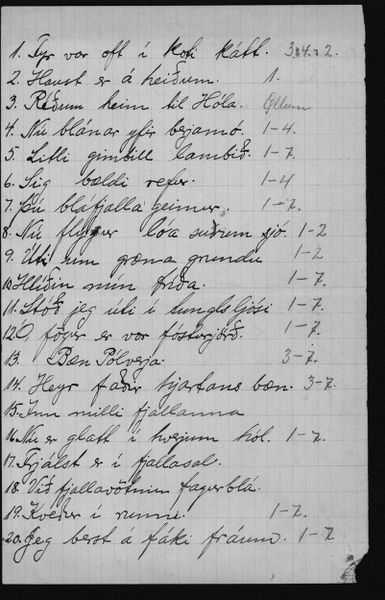 1. Fyr var oft í koti kátt. 3. 4. 2.
2. Haust er á heiðum. 1.
3. Ríðum heim til Hóla. Öllum
4. Nú blánar yfir berjamó. 1-4.
5. Litli gimbill lambið. 1-7.
6. Sig bældi refur. 1-4
7. Þú bláfjalla geimur. 1-7.
8. Nú flýgur lóa suðrum sjó. 1-2
9. Úti um græna grundu 1-2
10. Hlíðin mín fríða. 1-7.
11. Stóð jeg úti í tungls ljósi 1-7.
12. Ó, fögur er vor fósturjörð. 1-7.
13. Bæn Pólverja. 3-7.
14. Heyr faðir hjartans bæn. 3-7.
15. Inn milli fjallanna
16. Nú er glatt í hverjum hól. 1-7.
17. Frjálst er í fjallasal.
18. Við fjallavötnin fagurblá.
19. Kveður í runni. 1-7.
20. Jeg berst á fáki fráum. 1-7